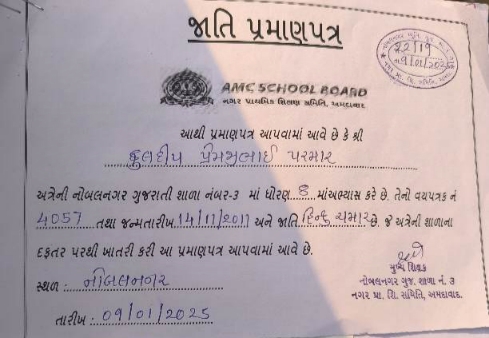 જાતિ પ્રમાણપત્ર
22/19
09/01/2025
AMC SCHOOL BOARD
નગર પ્રાથમિક શિક્ષણ સમિતિ, અમદાવાદ
આથી પ્રમાણપત્ર આપવામાં આવે છે કે શ્રી
કુલદીપ પ્રેમજીભાઈ પરમાર
અત્રેની નોબલનગર ગુજરાતી શાળા નંબર-૩ માં ધોરણ 8 માંઅભ્યાસ કરે છે. તેનો વયપત્રક નં
4057 તથા જન્મતારીખ 14/11/2011 અને જાતિ હિન્દુ ચમાર છે. જે અત્રેની શાળાના
દફતર પરથી ખાતરી કરી આ પ્રમાણપત્ર આપવામાં આવે છે.
સ્થળ : નોબલનગર
મુખ્ય શિક્ષક
નોબલનગર ગુજ. શાળા નં. ૩
નગર પ્રા. શિ. સમિતિ, અમદાવાદ.
તારીખ : 09/01/2025